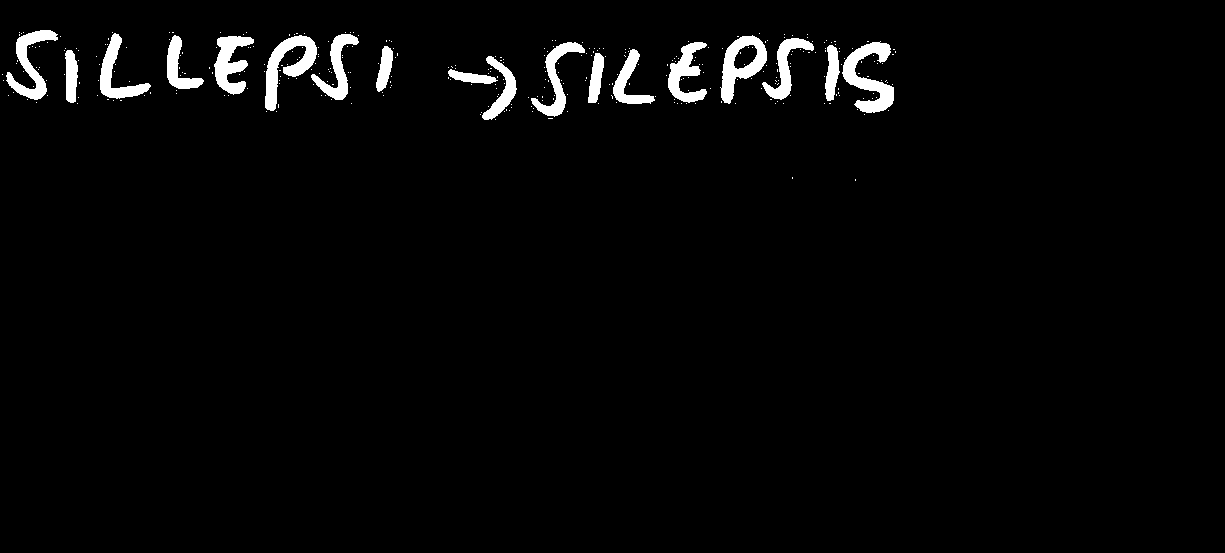 SILLEPSI → SILEPSIS